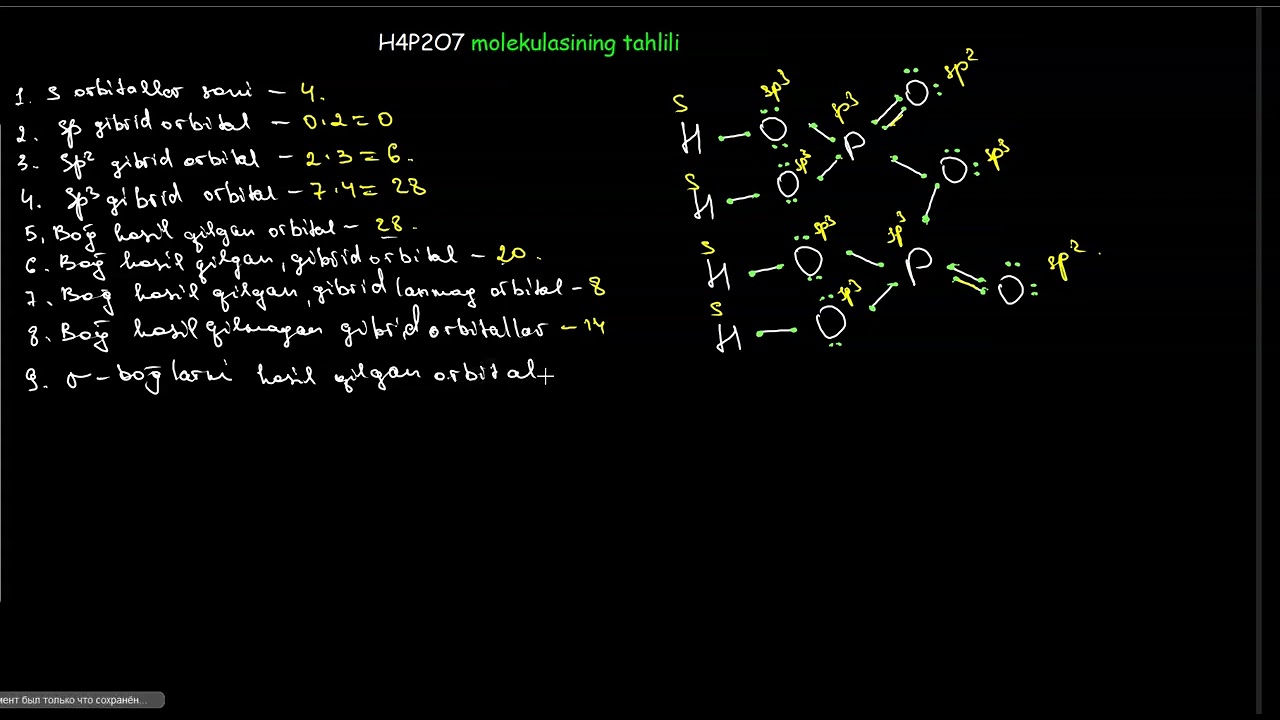 H4P2O7 molekulasining tahlili
1. s orbitallar soni – 4.
2. sp gibrid orbital – 0·2=0
3. sp² gibrid orbital – 2·3=6.
4. sp³ gibrid orbital – 7·4=28
5. Bog̃ hosil qilgan orbital – 28.
6. Bog̃ hosil qilgan, gibrid orbital – 20.
7. Bog̃ hosil qilgan, gibridlanmag orbital – 8
8. Bog̃ hosil qilmagan gibrid orbitallar – 14
9. σ – bog̃larni hosil qilgan orbital
sp²
s sp³ sp³ O
H O P
s sp³ O sp³
H O
s sp³ sp³
H O P sp².
s sp³ O
H O
мент был только что сохранён...